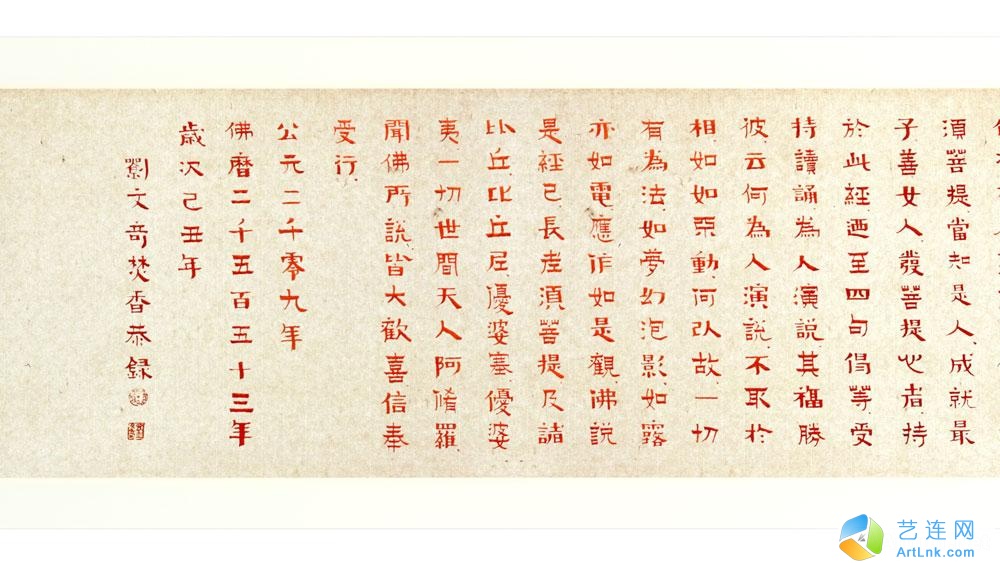 須菩提當知是人成就最
子善女人發菩提心者持
於此經迺至四句偈等受
持讀誦為人演說其福勝
彼云何為人演說不取於
相如如不動何以故一切
有為法如夢幻泡影如露
亦如電應作如是觀佛說
是經已長老須菩提及諸
比丘比丘尼優婆塞優婆
夷一切世間天人阿脩羅
聞佛所說皆大歡喜信奉
受行
公元二千零九年
佛曆二千五百五十三年
歲次己丑年
文奇焚香恭録
艺连网
ArtLnk.com